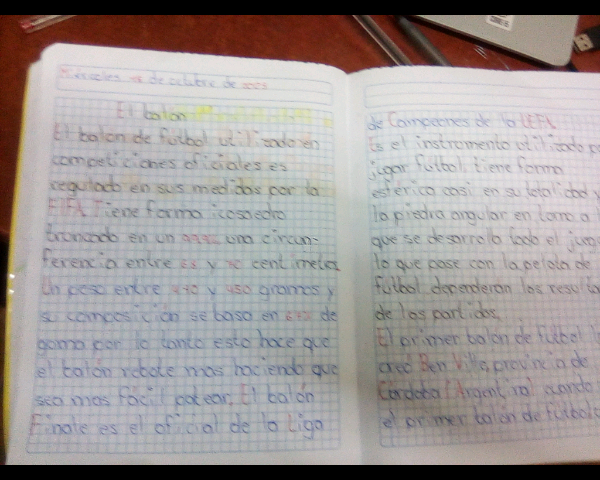 Miércoles de octubre de 2025
El balón
El balon de futbol utilizado en
competiciones oficiales es
regulado en sus medidas por la
FIFA Tiene forma icosaedro
truncado en un una circun-
ferencia entre 68 y 70 centimetros
Un peso entre 410 y 450 gramos y
su composición se basa en de
goma por lo tanto esto hace que
el balón rebote mas haciendo que
sea mas fácil patear. El balón
Finale es el oficial de la Liga
de Campeones de la UEFA
Es el instromento utilizado
jugar futbol, tiene forma
esferica casi en su totalidad y
la piedra angular en torno a
que se desarrolla todo el
lo que pase con la pelota de
futbol dependeran los
de los partidos.
El primer balon de futbol
creó Ben Ville, provincia de
Cordoba (Argentina) cuando
el primer balon de futbol